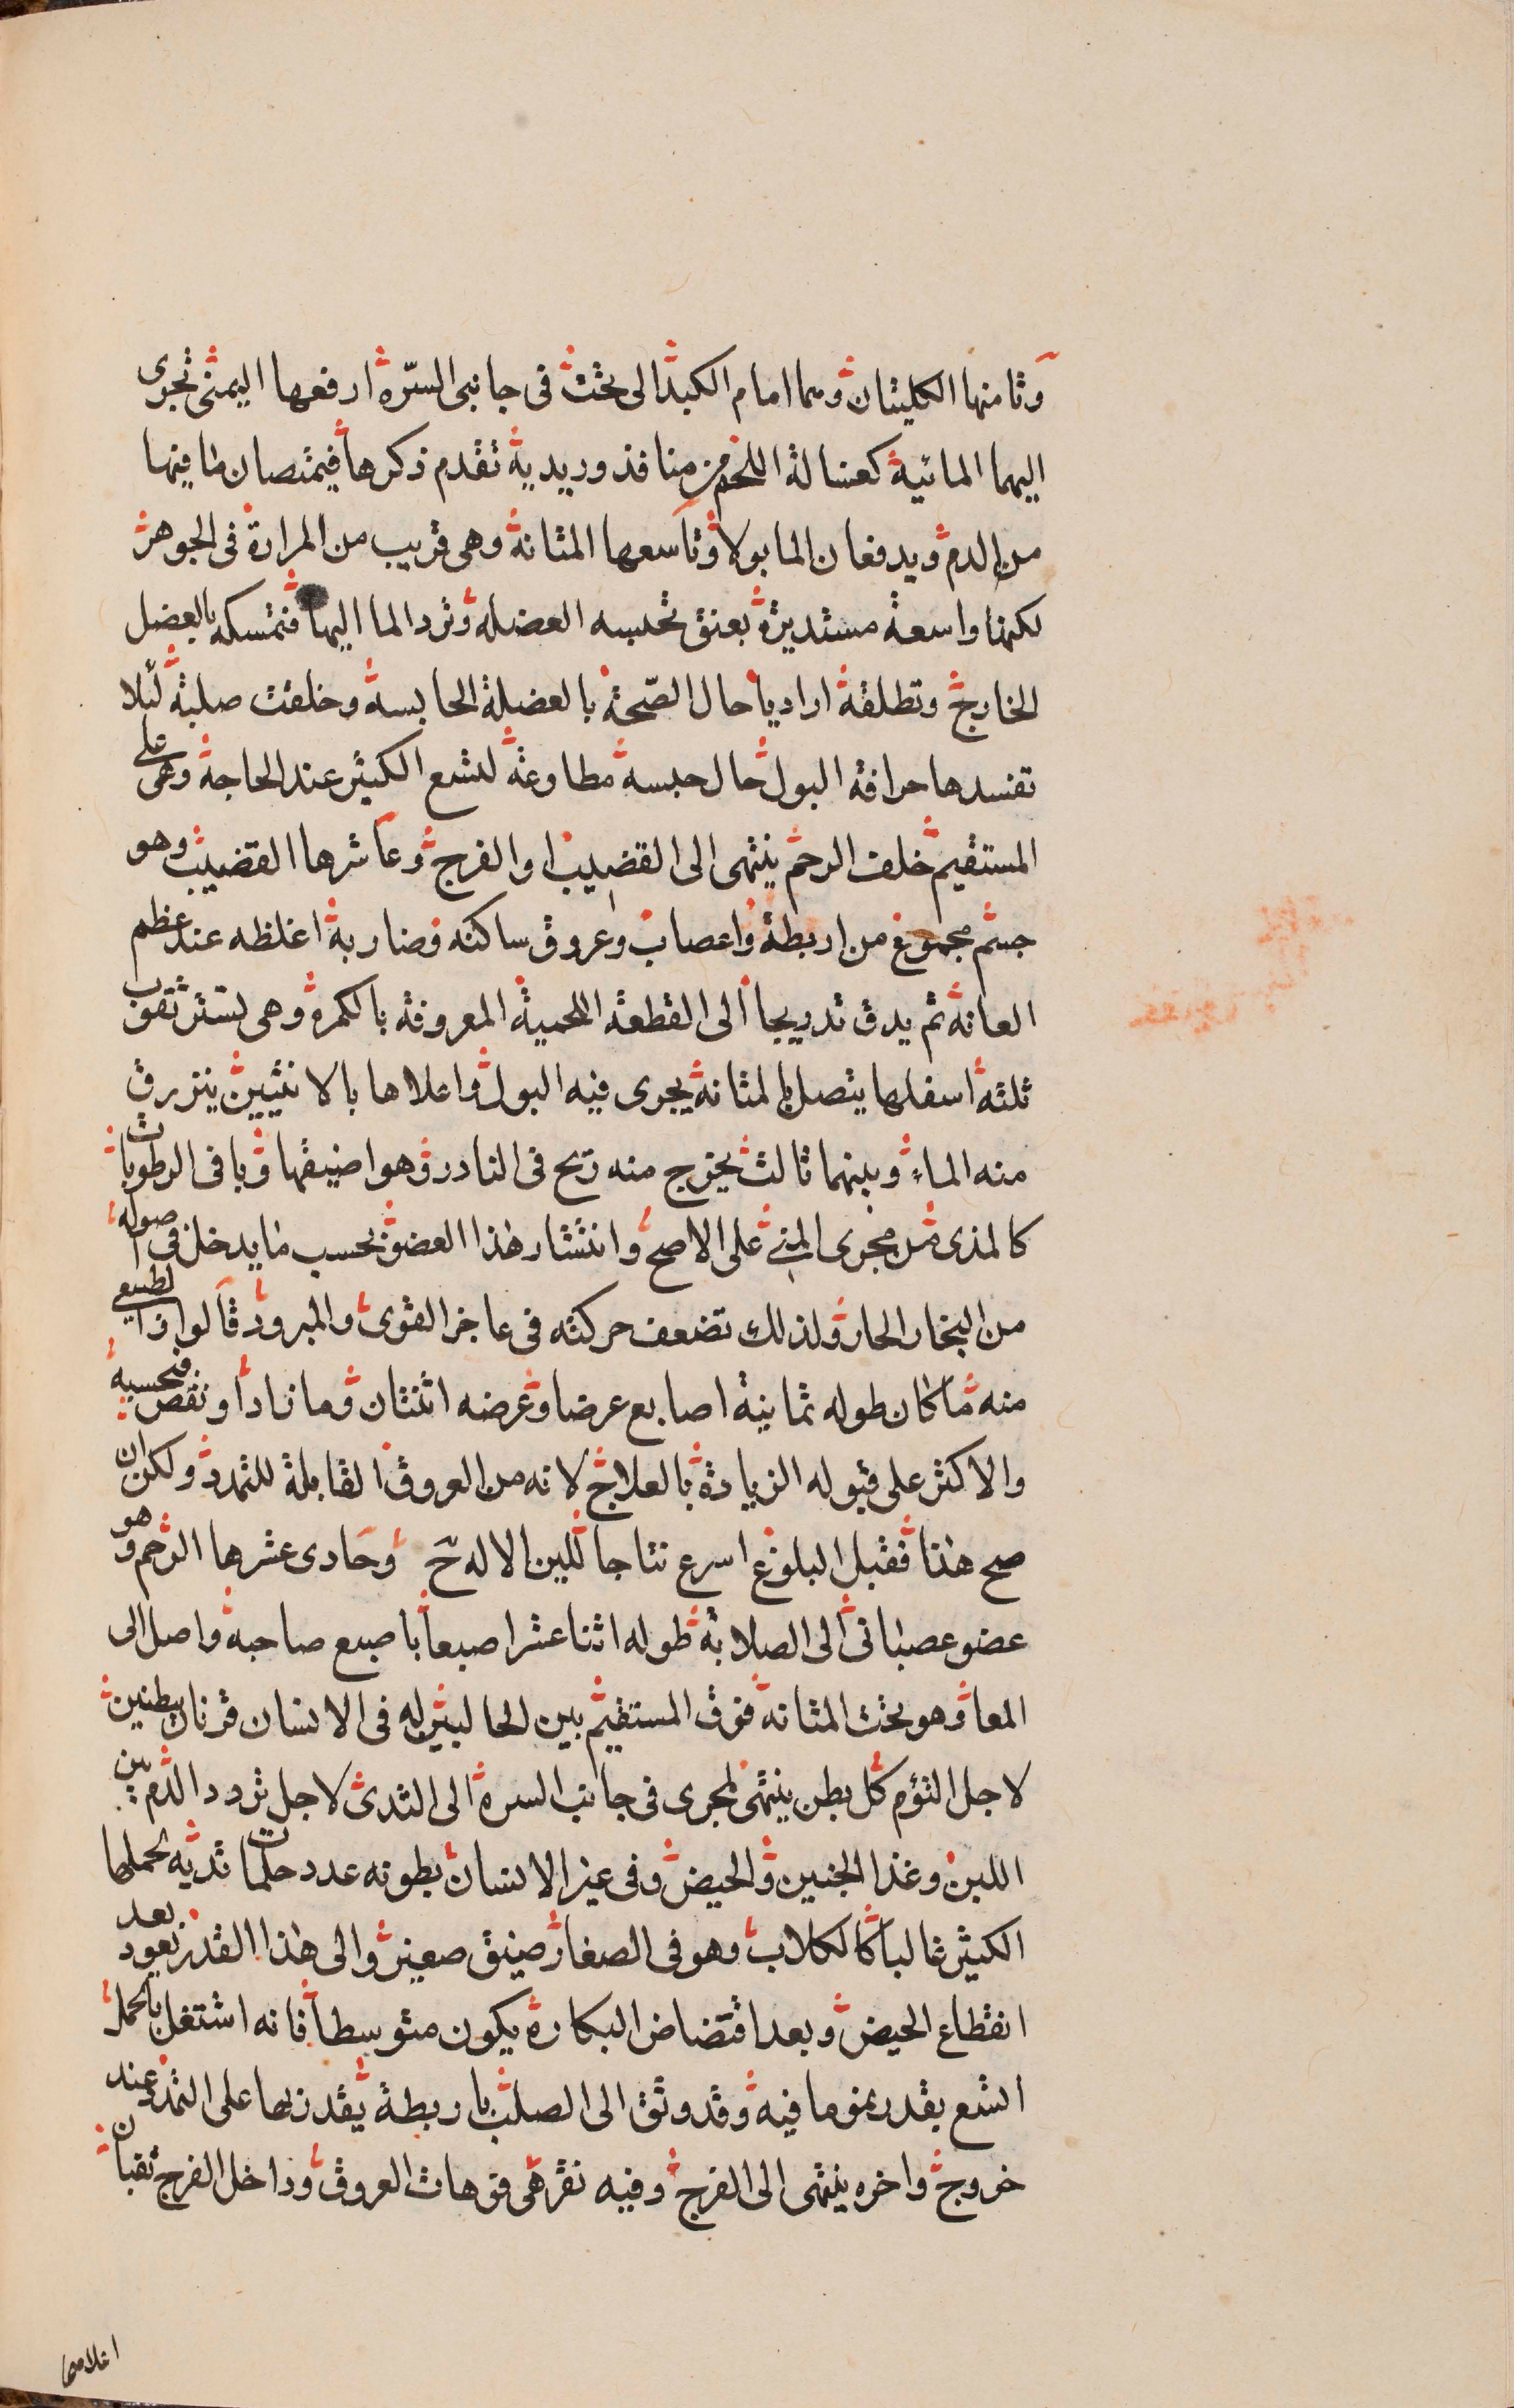 وثامنها الكليتان وهما امام الكبد الى تحت فى جانبى السّره ارفعها اليمنى تجرى
اليهما المائية كغسالة اللحم من منافذ وريدية تقدم ذكرها فيمتصان ما فيها
من الدم ويدفعان الما بولا وتاسعها المثانة وهى قريب من المرارة فى الجوهر
لكنها واسعة مستديرة بعنق تحبسه العضله وترد الما اليها فتمسكه بالعضل
الخارج وتطلقة اراديا حال الصّحة بالعضلة الحابسة وخلقت صلبة لئلا
تفسدها حرافة البول حال حبسة مطاوعة لتسع الكثير عند الحاجة وهى على
المستقيم خلف الرحم ينتهى الى القضيب او الفرج وعاشرها القضيب وهو
جسم مجموع من اربطة واعصاب وعروق ساكنه وضاربة اغلظه عند عظم
العانة ثم يدق تدريجا الى القطعة اللحمية المعروفة بالكمرة وهى تستر ثقوب
ثلثة اسفلها يتصل بالمثانة يجرى فيه البول واعلاها بالانثيين ينزرق
منه الماء وبينهما ثالث يخرج منه ريح فى النادر وهو اضيقها وباقى الرطوبات
كالمذى من مجرى المنى على الاصح وانتشار هذا العضو بحسب ما يدخل فى اصوله
من البخار الحار ولذلك تضعف حركته فى عاجز القوى والمبرود قالوا والطبيعى
منه ما كان طوله ثمانية اصابع عرضا وعرضه اثنتان وما زاد او نقص فحسبه
والاكثر على قبوله الزيادة بالعلاج لانه من العروق القابلة للتمدد ولكن ان
صح هذا فقبل البلوغ اسرع نتاجا للين الاله ح وحادى عشرها الرحم وهو
عضو عصبانى الى الصلابة طوله اثنا عشر اصبعا باصبع صاحبة واصل الى
المعا وهو تحت المثانة فوق المستقيم بين الحالبين له فى الانسان قرنان ببطنين
لاجل التؤم كل بطن ينتهى لمجرى فى جانب السرة الى الثدى لاجل تردد الدم بين
اللبن وغذا الجنين والحيض وفى غير الانسان بطونه عدد حلمات ثديه لحملها
الكثير غالبا كالكلاب وهو فى الصغار ضيق صغير والى هذا القدر يعود بعد
انقطاع الحيض وبعد اقتضاض البكارة يكون متوسطا فانه اشتغل بالحمل
اتسع بقدر نمو ما فيه وقد وثق الى الصلب باربطة يقدر بها على التمدد عند
خروج واخره ينتهى الى الفرج وفيه نقر هى فوهات العروق وداخل الفرج ثقبان
اعلاهما